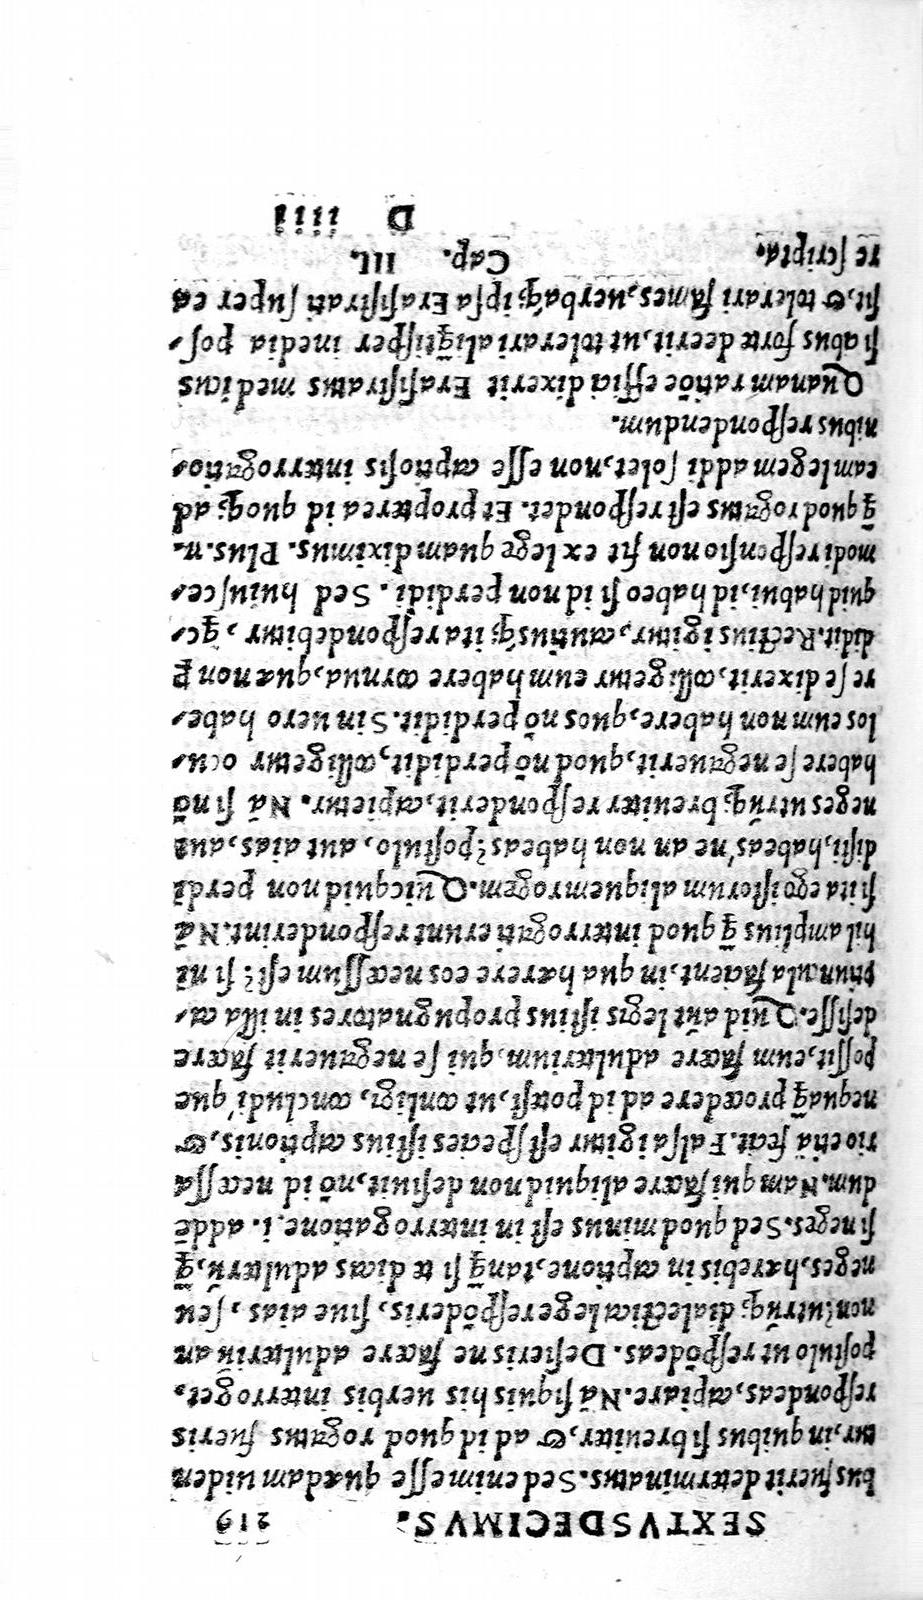 SEXTVSDECIMVS. 219
bus fuerit determinatus. Sed enim esse quædam uiden
tur, in quibus si breuiter, & ad id quod rogatus fueris
respondeas, capiare. Nã si quis his uerbis interroget,
postulo ut respõdeas. Desieris ne facere adulteriũ an
non? utrũq; dialectica lege respõderis, siue aias, seu
neges, hærebis in captione, tanq̃ si te dicas adulterũ, q̃
si neges. Sed quod minus est in interrogatione. i. addẽ
dum. Nam qui facere aliquid non desinit, nõ id necessa
rio etiã fecit. Falsa igitur est species istius captionis, &
nequaq̃ procedere ad id potest, ut colligi, concludi'que
possit, eum facere adulterium, qui se negauerit facere
desisse. Quid aũt legis istius propugnatores in illa ca-
ptiuncula facient, in qua hærere eos necessum est? si ni
hil amplius q̃ quod interrogati erunt responderint. Nã
si ita ego istorum aliquem rogem. Quicquid non perdi
disti, habeas'ne an non habeas? postulo, aut aias, aut
neges utrũq; breuiter responderit, capietur. Nã si nõ
habere se negauerit, quod nõ perdidit, colligetur ocu-
los eum non habere, quos nõ perdidit. Sin uero habe-
re se dixerit, colligetur eum habere cornua, quæ non ꝑ
didit. Rectius igitur, cautiusq; ita respondebitur, qc-
quid habui, id habeo si id non perdidi. Sed huiusce-
modi responsio non fit ex lege quam diximus. Plus. n.
q̃ quod rogatus est respondet. Et propterea id quoq; ad
eam legem addi solet, non esse captiosis interrogatio-
nibus respondendum.
Quanam ratiõe effici dixerit Erasistratus medicus
si cibus forte deerit, ut tolerari aliq̃tisper inedia pos-
sit, & tolerari fames, uerbaq; ipsa Erasistrati super ea
re scripta. Cap. III.
D iiii